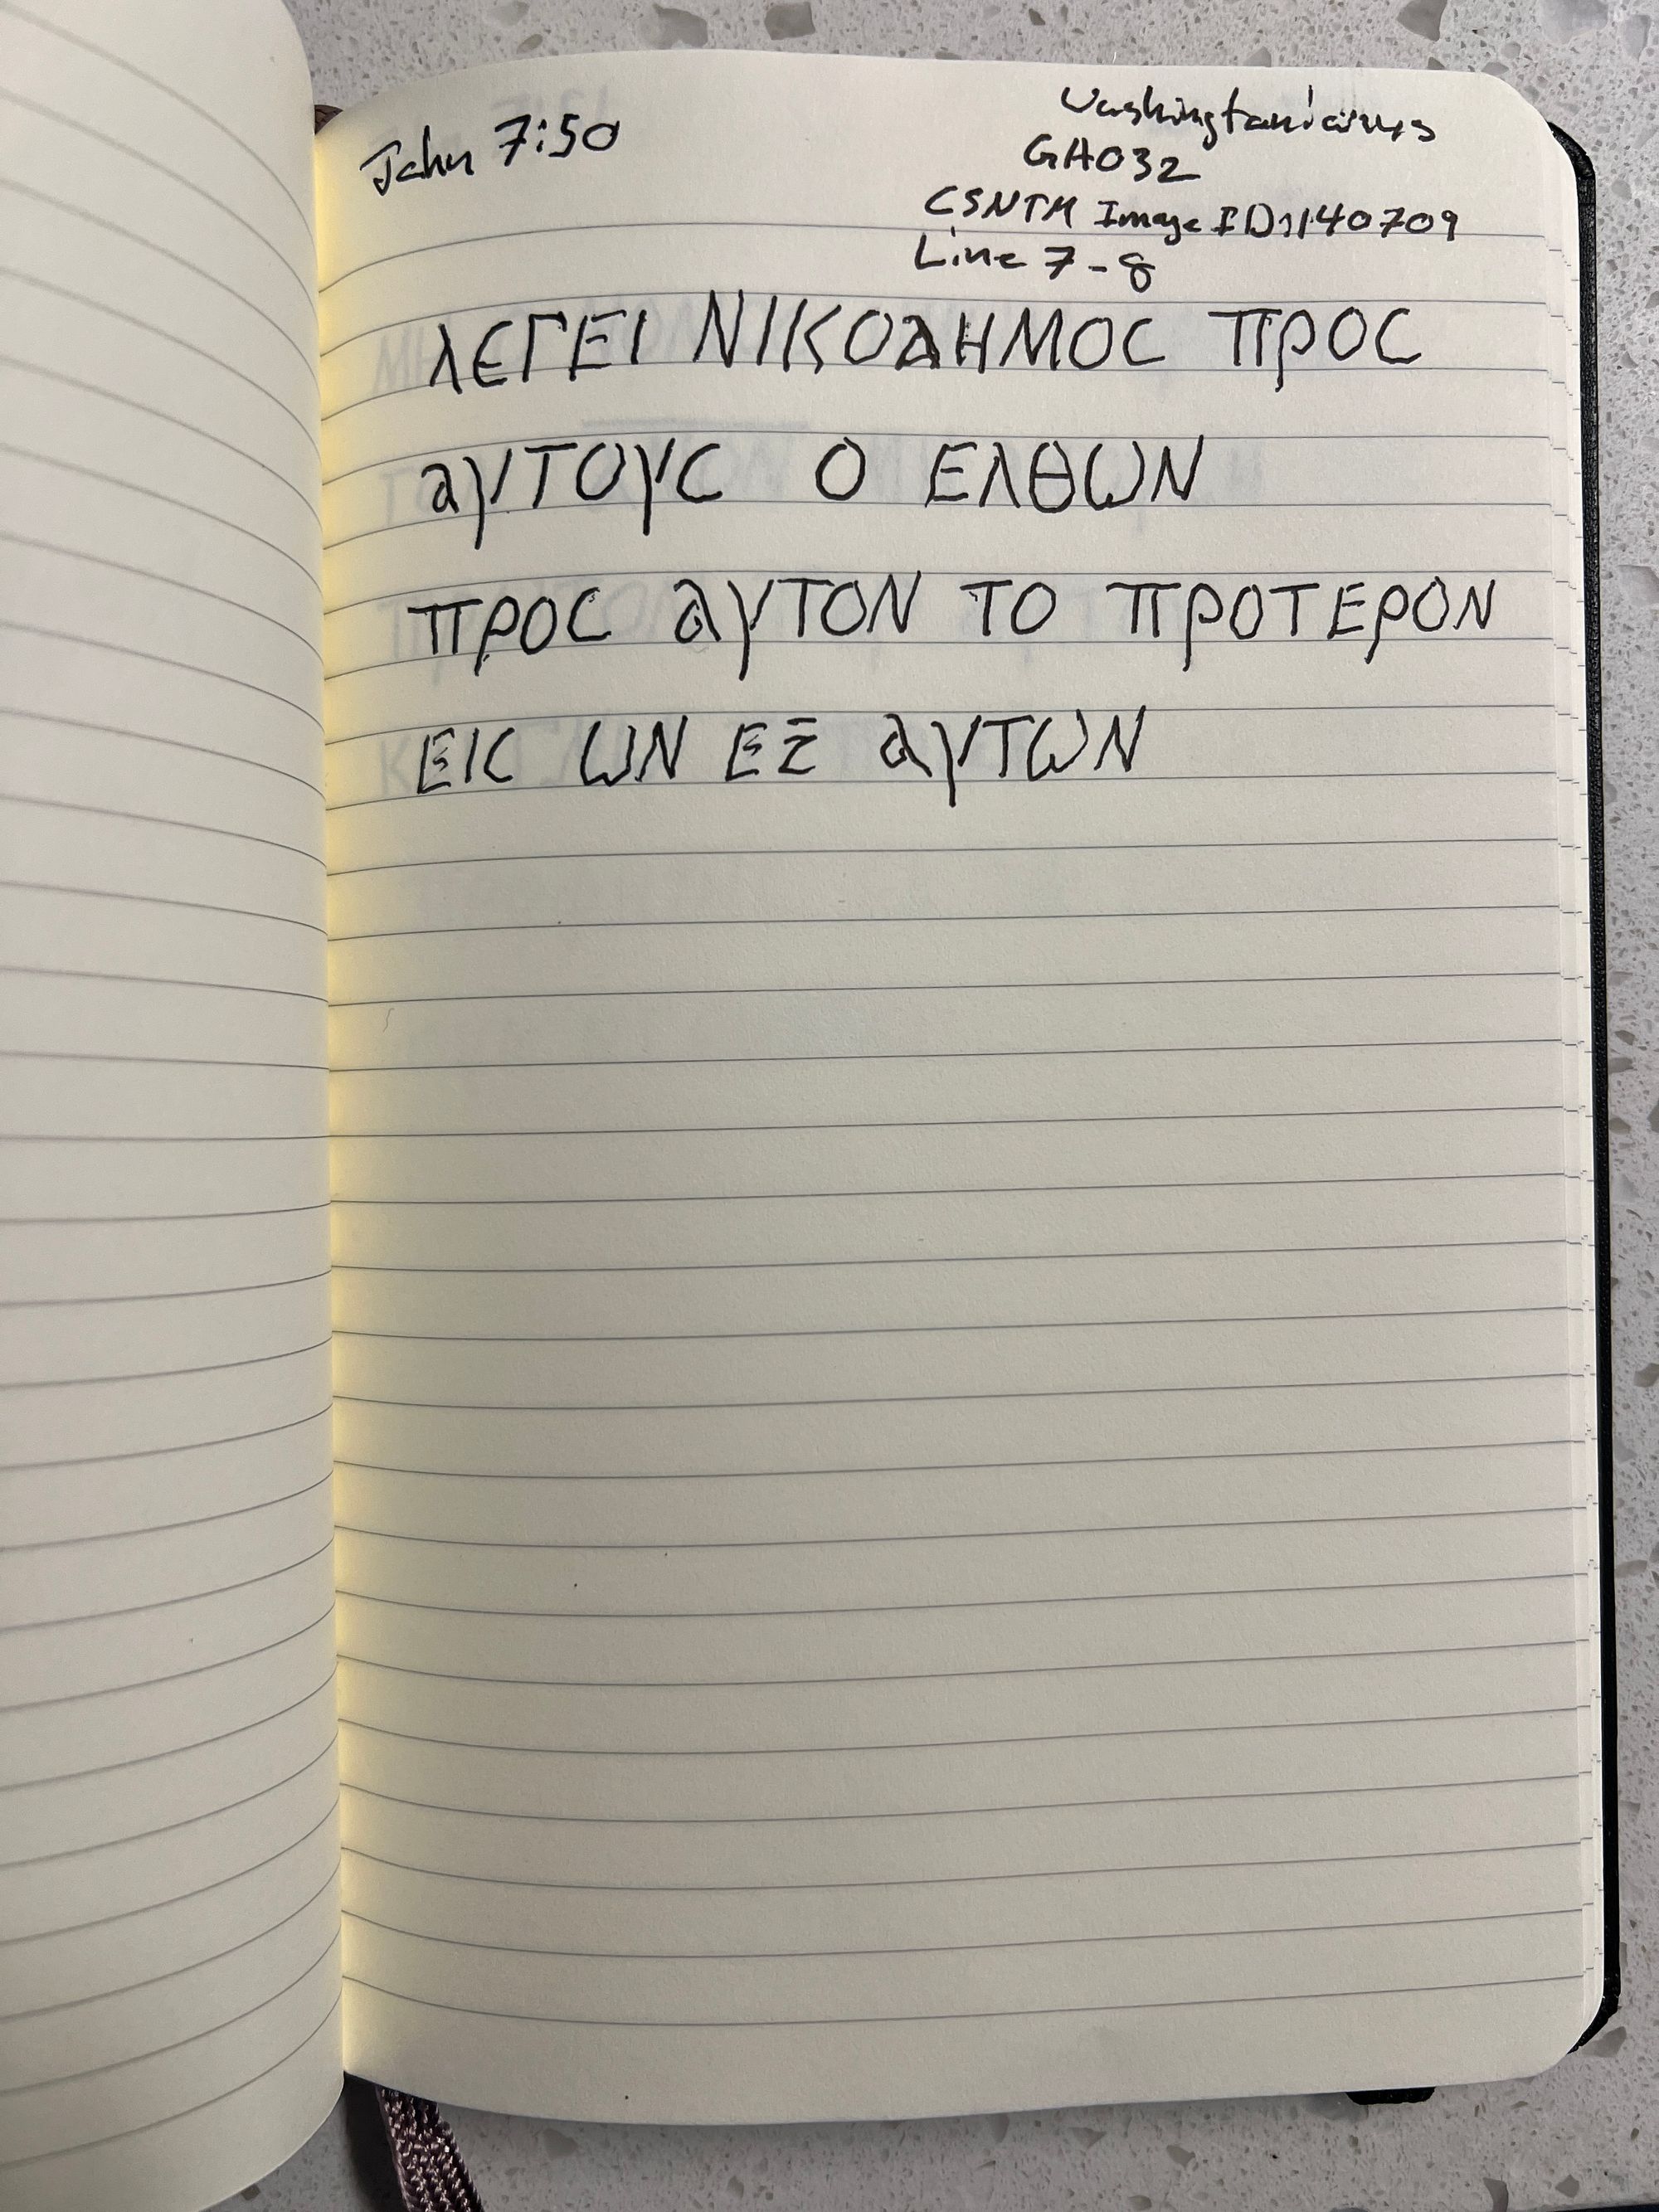 John 7:50
Washingtonianus
GA 032
CSNTM Image ID: 140709
Line 7-8
ΛΕΓΕΙ ΝΙΚΟΔΗΜΟC ΠΡΟC
ΑΥΤΟΥC Ο ΕΛΘΩΝ
ΠΡΟC ΑΥΤΟΝ ΤΟ ΠΡΟΤΕΡΟΝ
ΕΙC ΩΝ ΕΞ ΑΥΤΩΝ